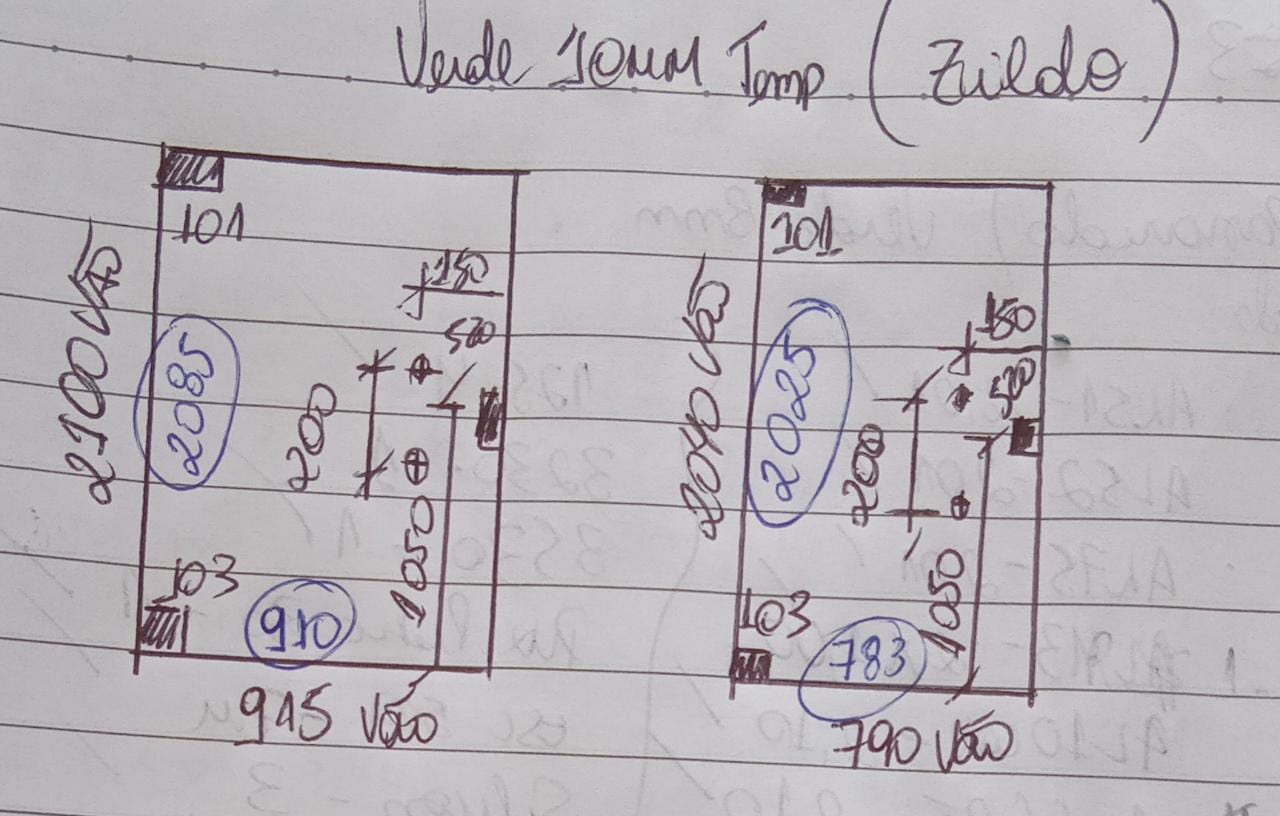 Verde 10MM Temp (Zildo)
101
150
520
2100 VÃO
2085
200
1050
103
910
915 Vão
101
150
520
2040 VÃO
2025
200
1050
103
783
790 Vão